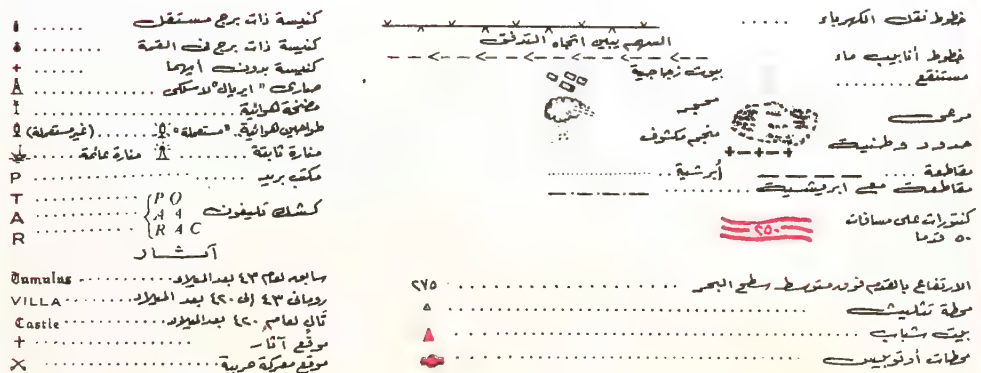 خطوط نقل الكهرباء .....
السهم يبين اتجاه التدفق
خطوط أنابيب ماء
مستنقع .........
بيوت زجاجية
محجر
مرعى
منجم مكشوف
حدود وطنية
مقاطعة ....
أبرشية ..
مقاطعة مع ابريشية ......
كنتورات على مسافات
٥٠ قدما
٢٥٠
الارتفاع بالقدم فوق متوسط سطح البحر ........ ٢٧٥
محطة تثليث ........
بيت شباب ........
محطات أوتوبيس ........
كنيسة ذات برج مستقل ......
كنيسة ذات برج فى القمة ......
كنيسة بدون أيهما ......
صارى "ايريال" لاسلكى ......
مضخة هوائية ......
طواحين هوائية.. "مستعملة" (غير مستعملة)
منارة ثابتة ...... منارة عائمة ....
مكتب بريد ...... P
كشك تليفون
PO ...... T
AA ...... A
RAC ...... R
آثار
سابقه لعام ٤٣ بعد الميلاد ........ Tumulus
رومانى ٤٣ إلى ٤٢٠ بعد الميلاد ........ VILLA
تالى لعام ٤٢٠ بعد الميلاد ........ Castle
موقع آثار ........
موقع معركة حربية ........